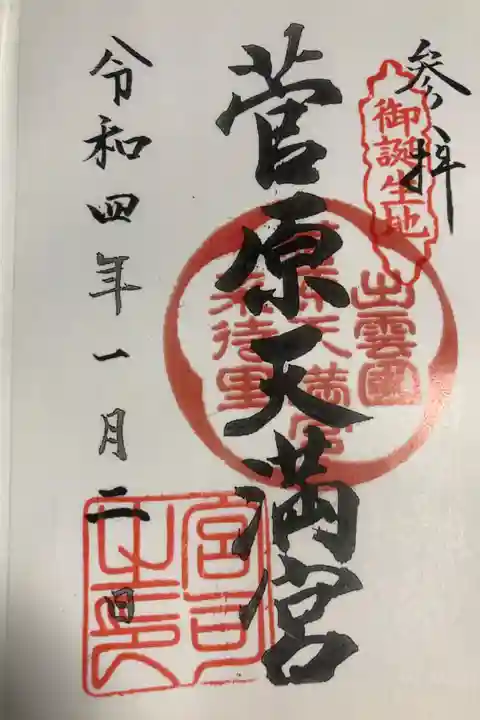 参拝
御誕生地
菅原天満宮
出雲國
菅原天満宮
来待里
令和四年一月二日
宮司